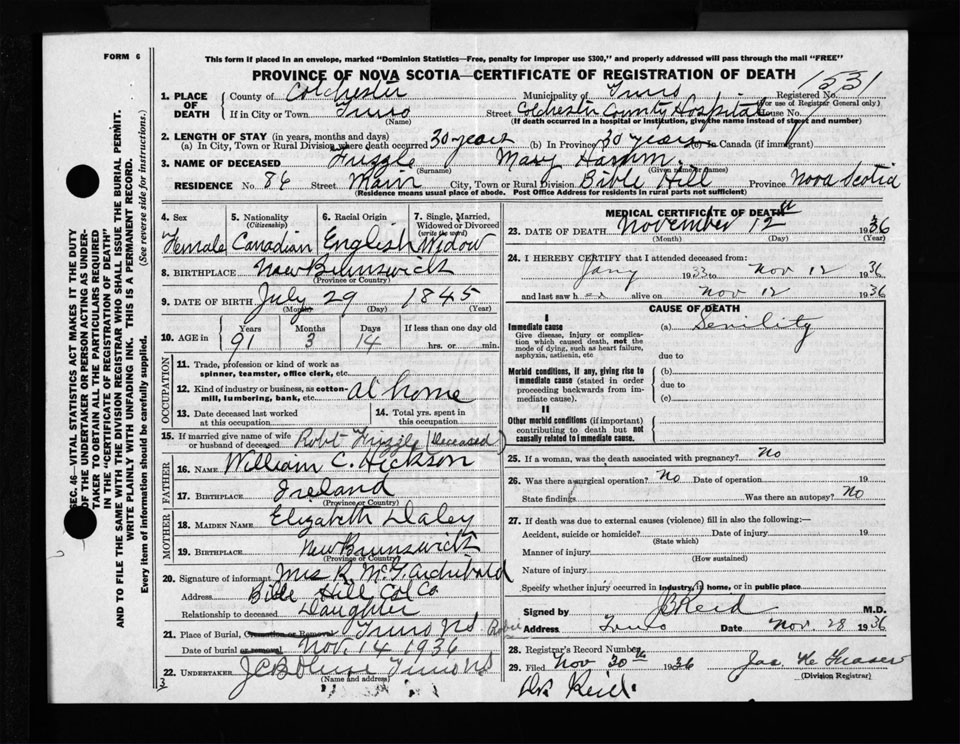 FORM 6
This form if placed in an envelope, marked "Dominion Statistics—Free, penalty for improper use $300," and properly addressed will pass through the mail "FREE"
PROVINCE OF NOVA SCOTIA—CERTIFICATE OF REGISTRATION OF DEATH
1531
1. PLACE OF DEATH
County of Colchester Municipality of Truro Registered No.
(For use of Registrar General only)
If in City or Town Truro Street Colchester County Hospital House No.
(Name) (If death occurred in a hospital or institution, give the name instead of street and number)
2. LENGTH OF STAY (in years, months and days)
(a) In City, Town or Rural Division where death occurred 30 years (b) In Province 30 years (c) In Canada (if immigrant)
3. NAME OF DECEASED Frizzle Mary
(Surname) (Given name or names)
RESIDENCE No. 86 Street Main City, Town or Rural Division Bible Hill Province Nova Scotia
(Residence means usual place of abode. Post Office Address for Residents in rural parts not sufficient)
4. Sex Female
5. Nationality (Citizenship) Canadian
6. Racial Origin English
7. Single, Married, Widowed or Divorced (write the word) Widow
8. BIRTHPLACE New Brunswick
(Province or Country)
9. DATE OF BIRTH July 29 1845
(Month) (Day) (Year)
10. AGE in
Years Months Days If less than one day old
91 3 14 hrs. or min.
OCCUPATION
11. Trade, profession or kind of work as spinner, teamster, office clerk, etc.
12. Kind of industry or business, as cotton-mill, lumbering, bank, etc. at home
13. Date deceased last worked at this occupation
14. Total yrs. spent in this occupation
15. If married give name of wife or husband of deceased Robt Frizzle (Deceased)
FATHER
16. NAME William C. Hickson
17. BIRTHPLACE Ireland
(Province or Country)
MOTHER
18. MAIDEN NAME Elizabeth Daley
19. BIRTHPLACE New Brunswick
(Province or Country)
20. Signature of informant Mrs R. McG. Archibald
Address Bible Hill Col Co
Relationship to deceased Daughter
21. Place of Burial, Cremation or Removal Truro NS Robie
Date of burial or removal Nov. 14 1936
22. UNDERTAKER Truro NS
(Name and address)
3
MEDICAL CERTIFICATE OF DEATH
23. DATE OF DEATH November 12th 1936
(Month) (Day) (Year)
24. I HEREBY CERTIFY that I attended deceased from:
Jany 1933 to Nov 12 1936
and last saw her alive on Nov 12 1936
CAUSE OF DEATH
I
Immediate cause
Give disease, injury or complication which caused death, not the mode of dying, such as heart failure, asphyxia, asthenia, etc
(a) Senility
due to
Morbid conditions, if any, giving rise to immediate cause (stated in order proceeding backwards from immediate cause).
(b)
due to
(c)
II
Other morbid conditions (if important) contributing to death but not causally related to immediate cause.
25. If a woman, was the death associated with pregnancy? No
26. Was there a surgical operation? No Date of operation 19
State findings Was there an autopsy? No
27. If death was due to external causes (violence) fill in also the following:—
Accident, suicide or homicide? Date of injury 19
(State which)
Manner of injury
(How sustained)
Nature of injury
Specify whether injury occurred in industry, in home, or in public place
Signed by JB Reid M.D.
Address Truro Date Nov. 28 1936
28. Registrar's Record Number
29. Filed Nov 30th 1936 Jas. W. Fraser
(Division Registrar)
Dr Reid.
SEC. 46—VITAL STATISTICS ACT MAKES IT THE DUTY
OF THE UNDERTAKER OR PERSON ACTING AS UNDER-
TAKER TO OBTAIN ALL THE PARTICULARS REQUIRED
IN THE "CERTIFICATE OF REGISTRATION OF DEATH"
AND TO FILE THE SAME WITH THE DIVISION REGISTRAR WHO SHALL ISSUE THE BURIAL PERMIT.
WRITE PLAINLY WITH UNFADING INK. THIS IS A PERMANENT RECORD.
Every item of information should be carefully supplied. (See reverse side for instructions.)